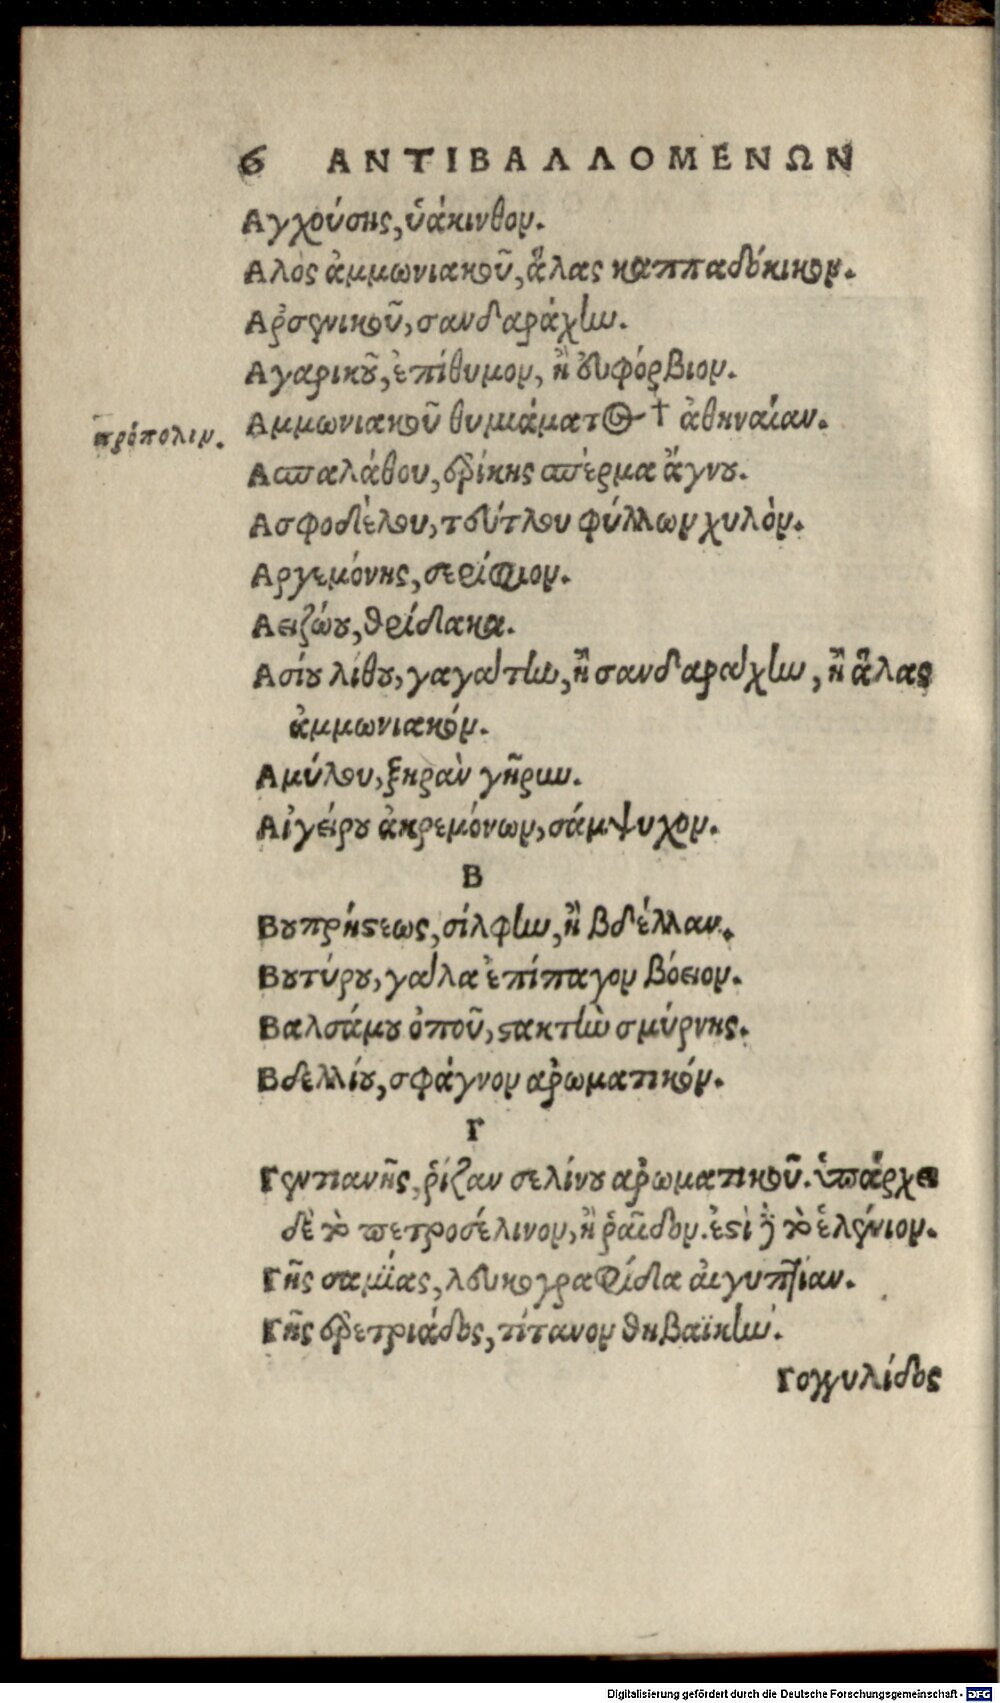 6 ΑΝΤΙΒΑΛΛΟΜΕΝΩΝ
Αγχούσης, ὑάκινθον.
Αλὸς ἀμμωνιακοῦ, ἅλας καππαδόκικον.
Αρσενικοῦ, σανδαράχην.
Αγαρικοῦ, ἐπίθυμον, ἢ εὐφόρβιον.
Αμμωνιακοῦ θυμιάματος † ἀθηναίαν.
πρόπολιν.
Ασπαλάθου, ἐρίκης σπέρμα ἄγνου.
Ασφοδέλου, τεύτλου φύλλων χυλὸν.
Αργεμόνης, σερίφιον.
Αειζώου, θρίδακα.
Ασίου λίθου, γαγάτην, ἢ σανδαράχην, ἢ ἅλας
ἀμμωνιακόν.
Αμύλου, ξηρὰν γῆριν.
Αἰγείρου ἀκρεμόνων, σάμψυχον.
Β
Βουπρήστεως, σίλφην, ἢ βδέλλαν.
Βουτύρου, γάλα ἐπίπαγον βόειον.
Βαλσάμου ὀποῦ, στακτὴν σμύρνης.
Βδελλίου, σφάγνον ἀρωματικόν.
Γ
Γεντιανῆς, ῥίζαν σελίνου ἀρωματικοῦ. ὑπάρχει
δὲ τὸ πετροσέλινον, ἢ ῥάϊδον. ἐστὶ δὲ τὸ ἑλένιον.
Γῆς σαμίας, λευκογραφίδα αἰγυπτίαν.
Γῆς ἐρετριάδος, τίτανον θηβαϊκήν.
Γογγυλίδος
Digitalisierung gefördert durch die Deutsche Forschungsgemeinschaft - DFG